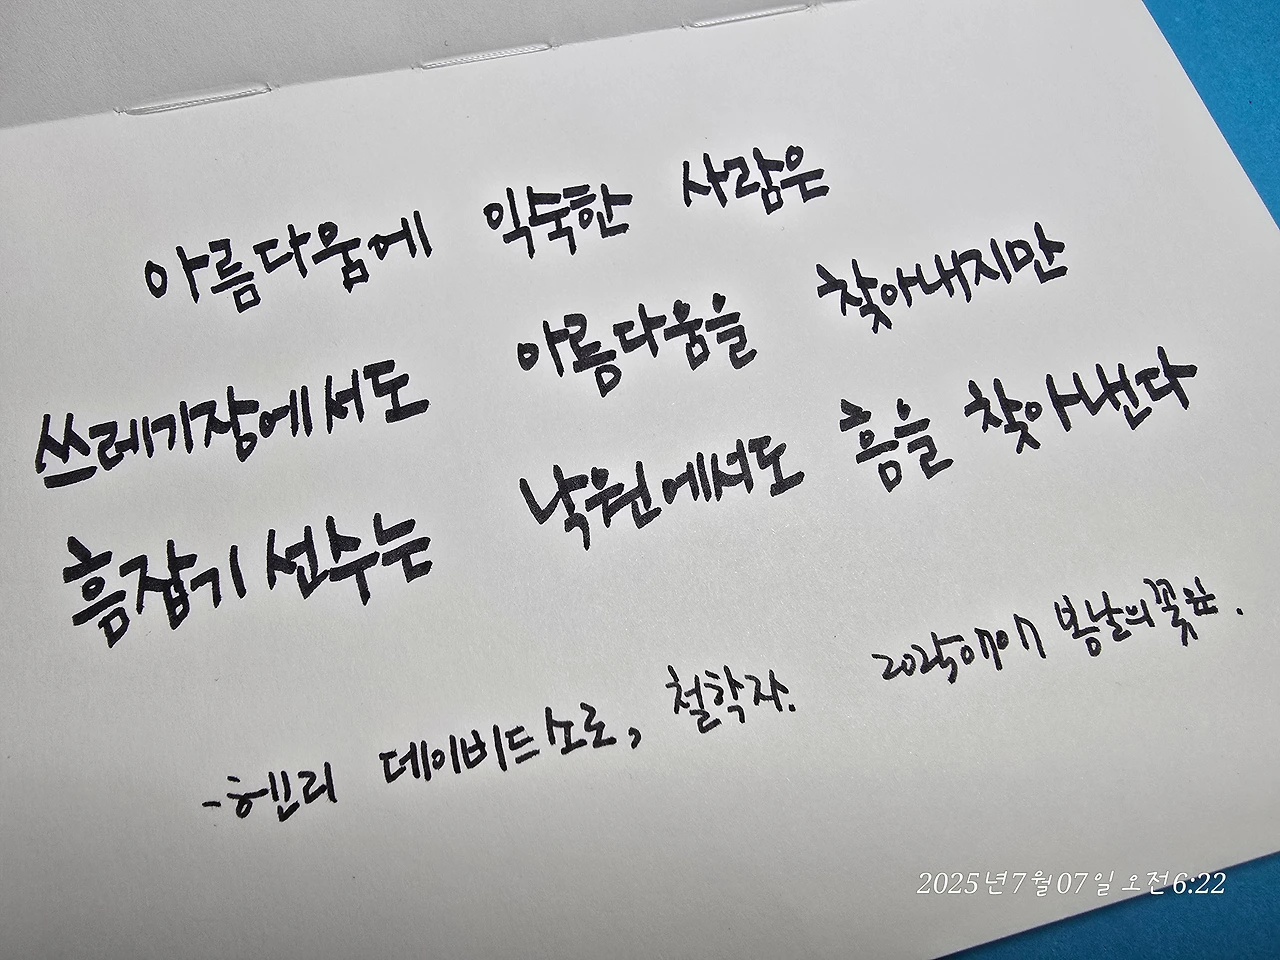 아름다움에 익숙한 사람은
쓰레기장에서도 아름다움을 찾아내지만
흠잡기 선수는 낙원에서도 흠을 찾아낸다
-헨리 데이비드 소로, 철학자.
봄날의 꽃잎.
2025년 7월 07일 오전 6:22